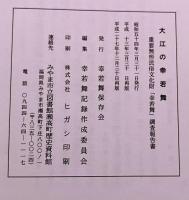 大江の幸若舞
重要無形民俗文化財「幸若舞」調査報告書
昭和五十四年三月三十一日発行
平成十三年三月三十一日再版
平成二十七年十二月二十日再版
発行 幸若舞保存会
編集 幸若舞記録作成委員会
印刷 株式会社ヒガシ印刷
連絡先 みやま市立図書館瀬高町歴史資料館
福岡県みやま市瀬高町下庄八〇〇ノ一
電話 〇九四四-六四-一一一七